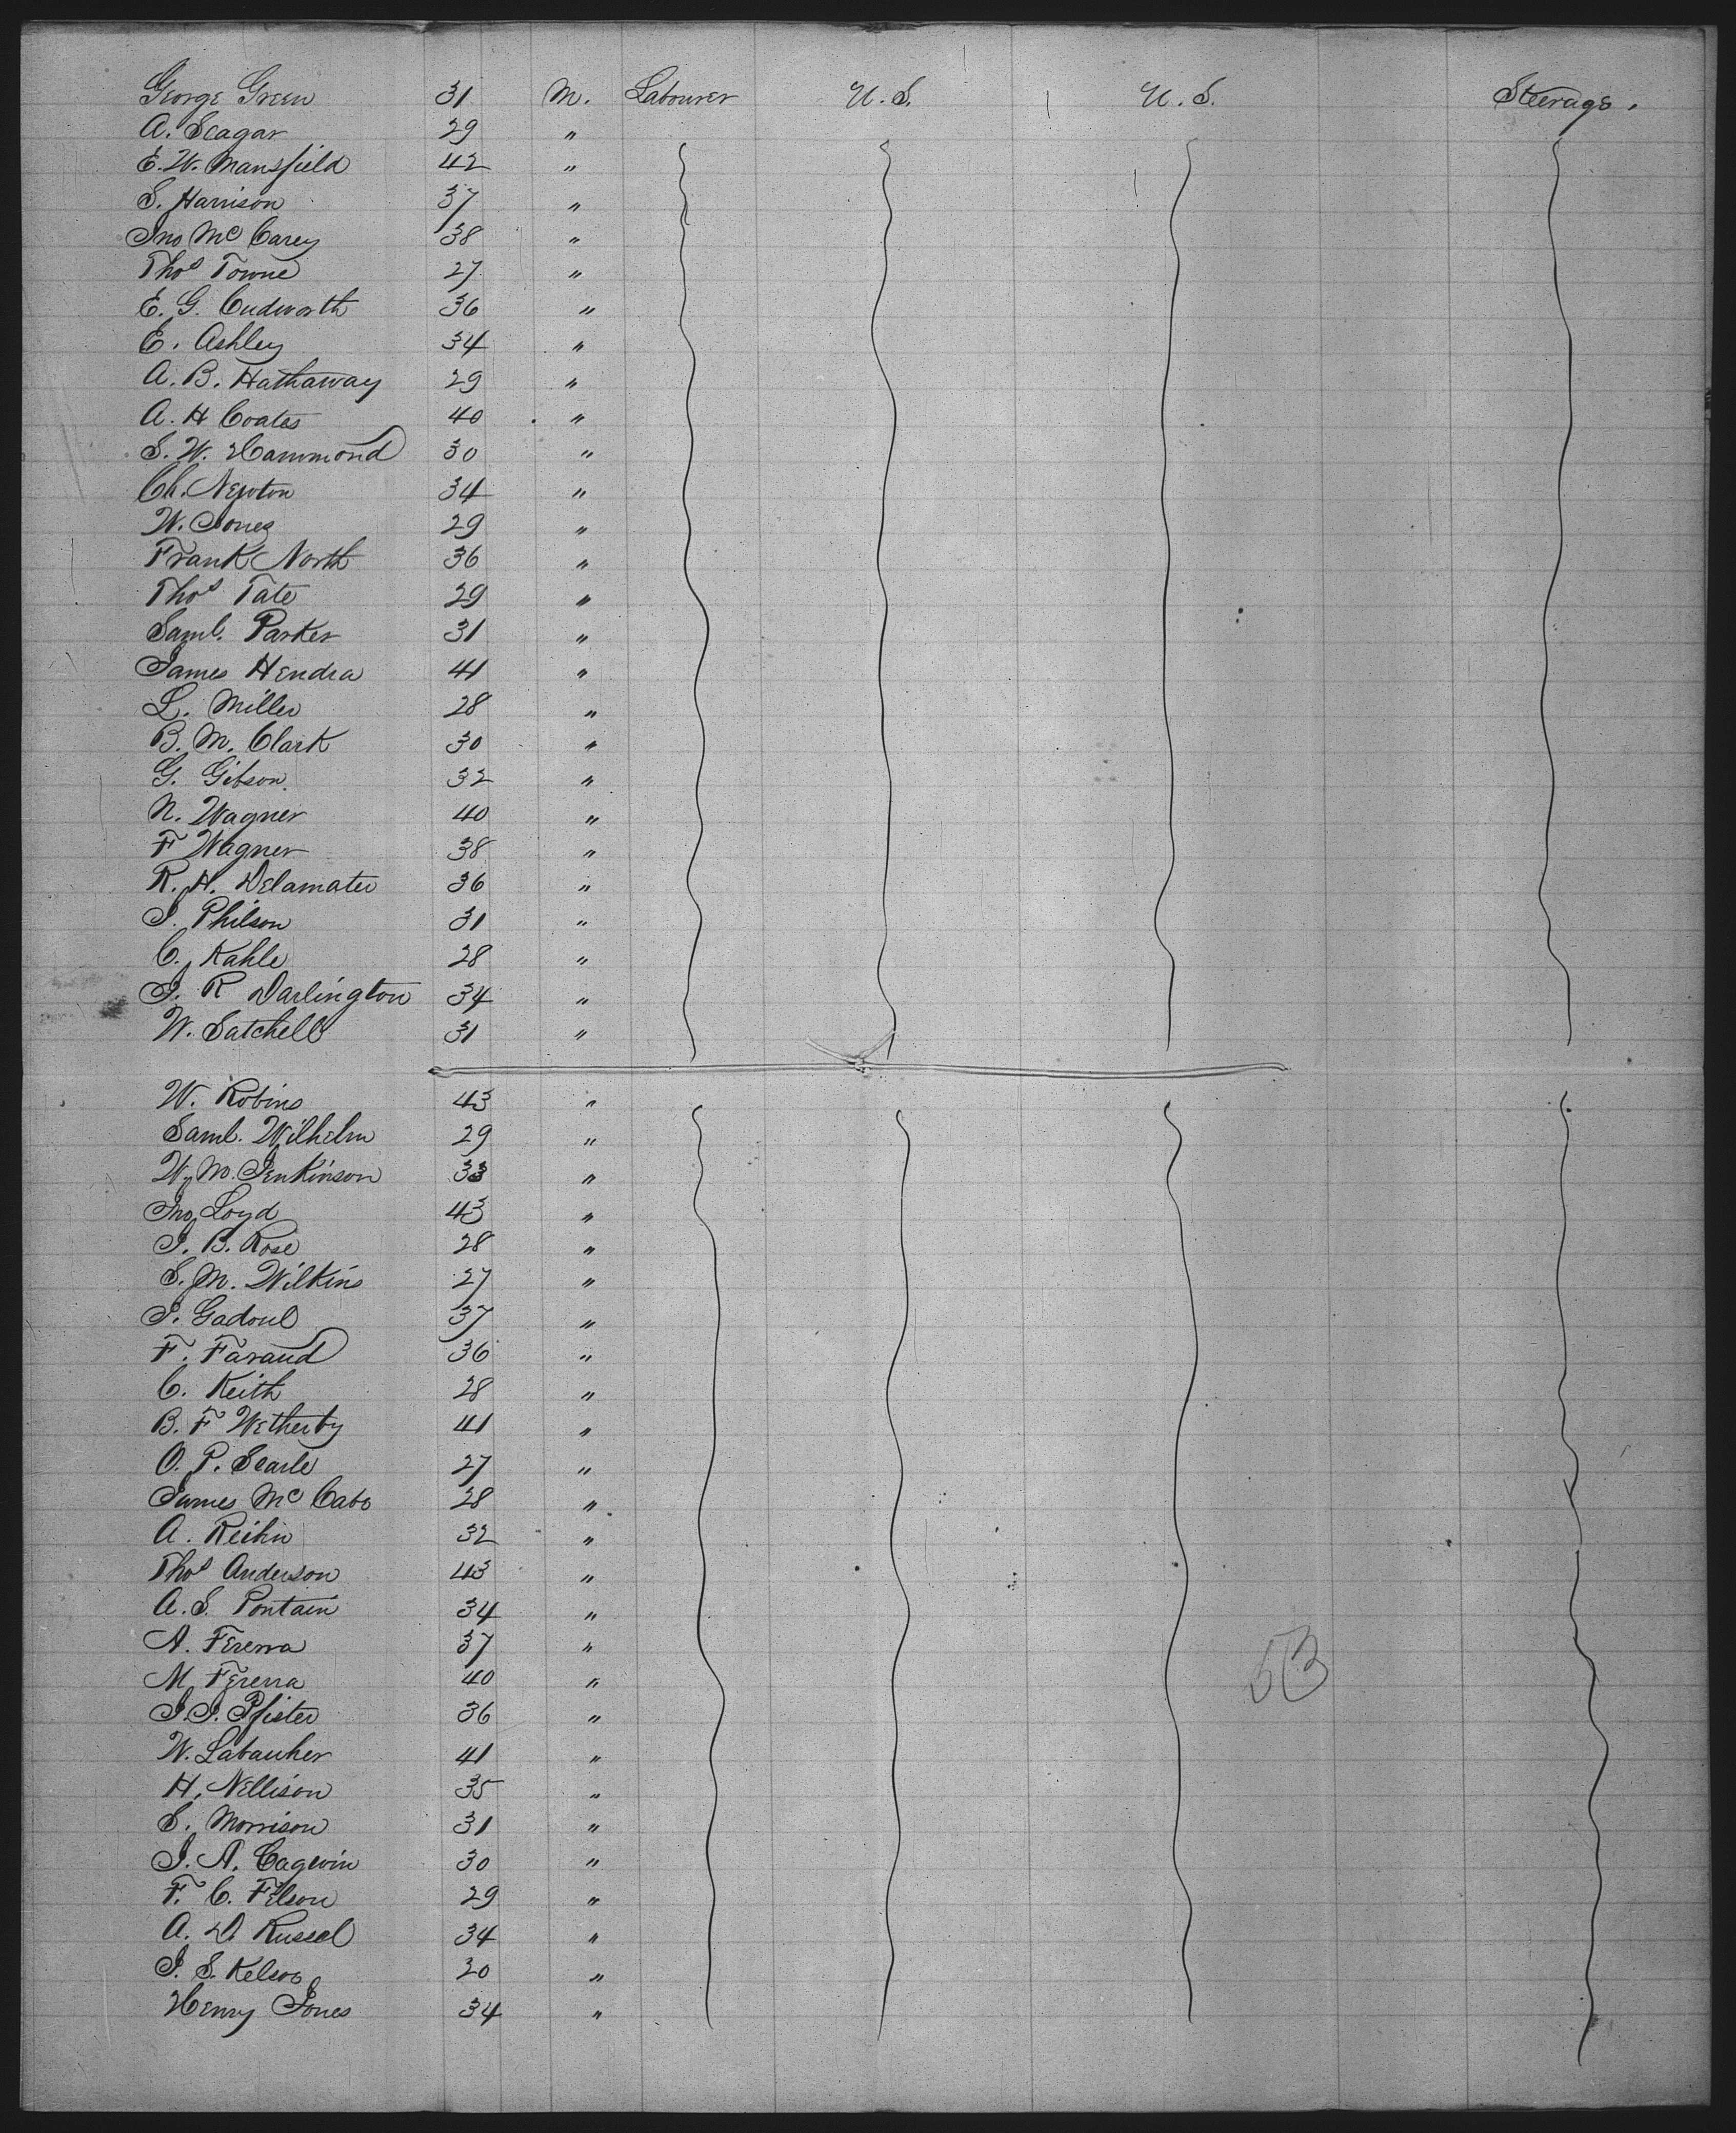 George Green 31 M. Labourer U.S. U.S. Steerage.
A. Seagar 29 "
E. W. Mansfield 42 "
S. Harrison 37 "
Jno Mc Carey 38 "
Thos Towne 27 "
E. G. Cudworth 36 "
E. Ashley 34 "
A. B. Hathaway 29 "
A. H Coates 40 "
S. W. Hammond 30 "
Ch. Newton 34 "
W. Jones 29 "
Frank North 36 "
Thos Tate 29 "
Saml. Parker 31 "
James Hendra 41 "
L. Miller 28 "
B. M. Clark 30 "
G. Gibson. 32 "
N. Wagner 40 "
F Wagner 38 "
R. H. Delamater 36 "
J. Philson 31 "
C. Kahle 28 "
J. R Darlington 34 "
W. Satchell 31 "
W. Robins 43 "
Saml. Wilhelm 29 "
W. M. Jenkinson 33 "
Jno Loyd 43 "
J. B. Rose 28 "
S. M. Wilkins 27 "
J. Gadoul 37 "
F. Faraud 36 "
C. Keith 28 "
B. F Wetherby 41 "
O. P. Searle 27 "
James Mc Cabe 28 "
A. 32 "
Thos Anderson 43 "
A. S. Pontain 34 "
A. Ferera 37 "
M Ferera 40 "
J. J. Pfister 36 "
W. 41 "
H. Nellison 35 "
S. Morrison 31 "
J. A. Cagwin 30 "
F. C. Filson 29 "
A. D. Russel 34 "
J. S. Kelso 20 "
Henry Jones 34 "
53